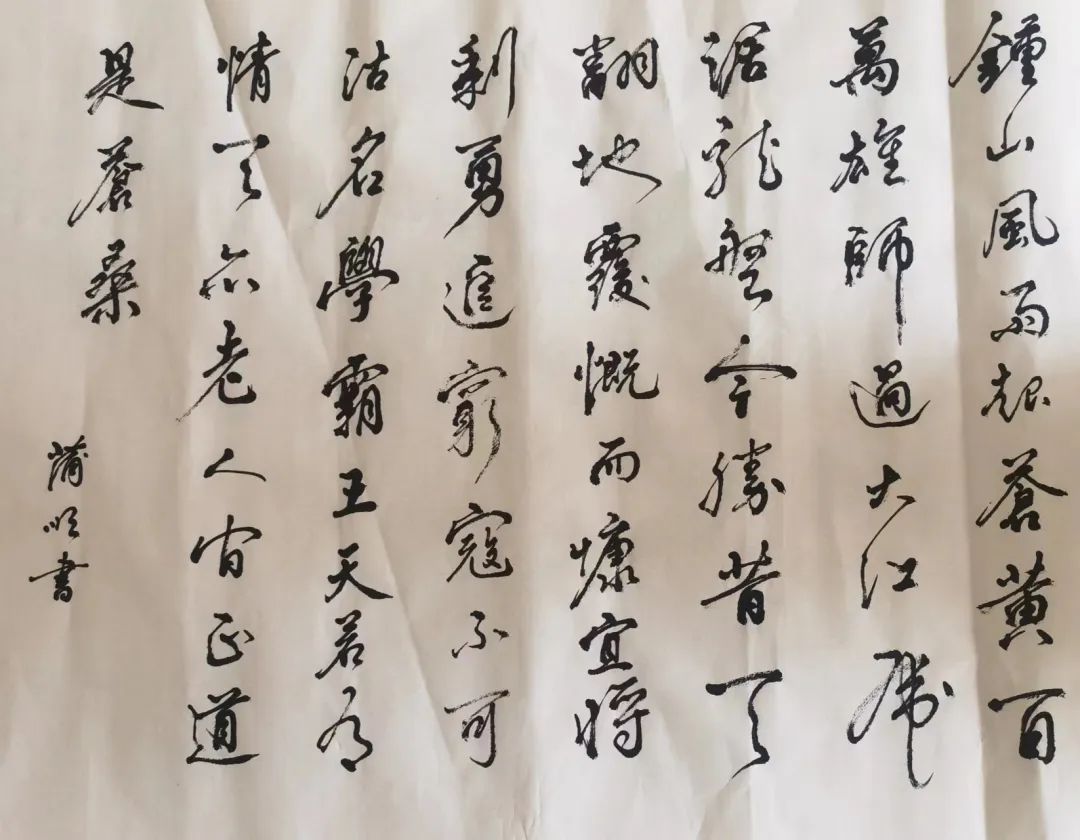 鍾山風雨起蒼黃百
萬雄師過大江虎
踞龍盤今勝昔天
翻地覆慨而慷宜將
剩勇追窮寇不可
沽名學霸王天若有
情天亦老人间正道
是蒼桑
蒲書